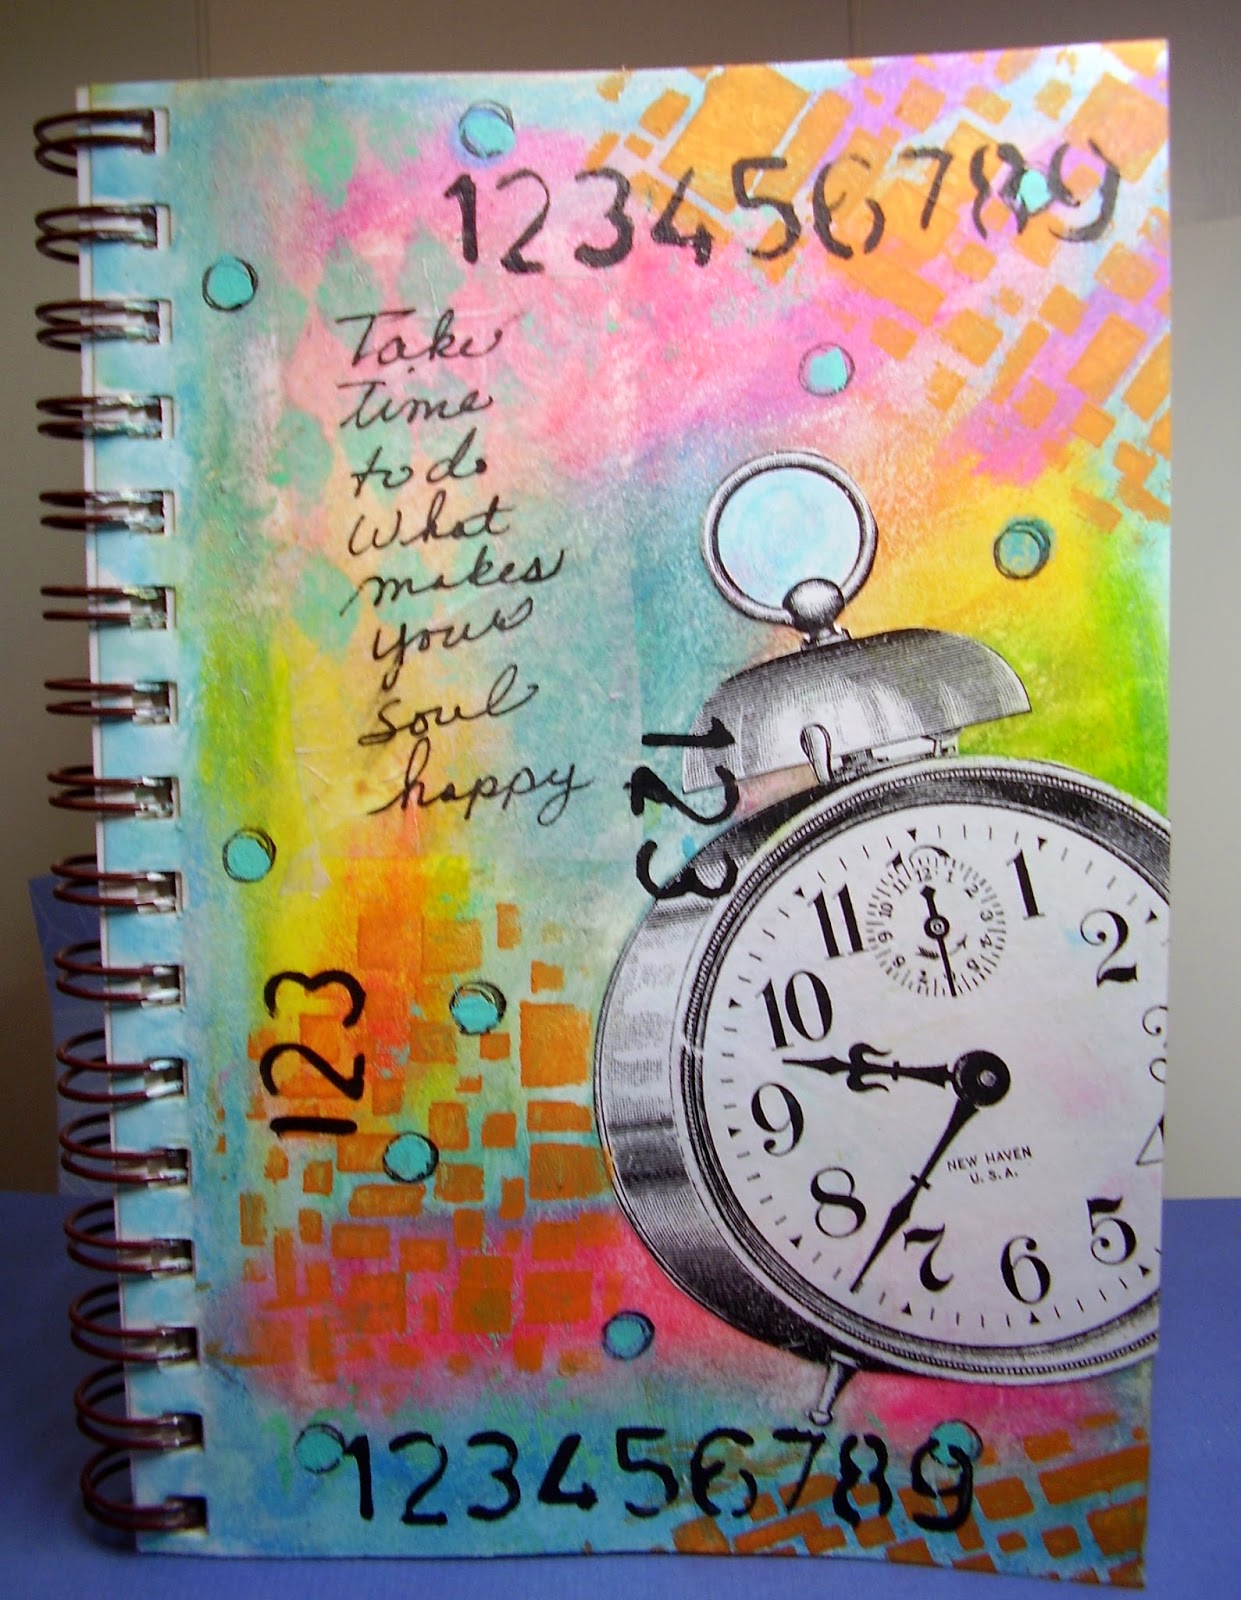 123456789
Take
Time
to do
What
makes
your
soul
happy
123
123
11
12
1
2
3
9
10
11
12
1
2
10
9
NEW HAVEN
U. S. A.
8
7
6
5
123456789